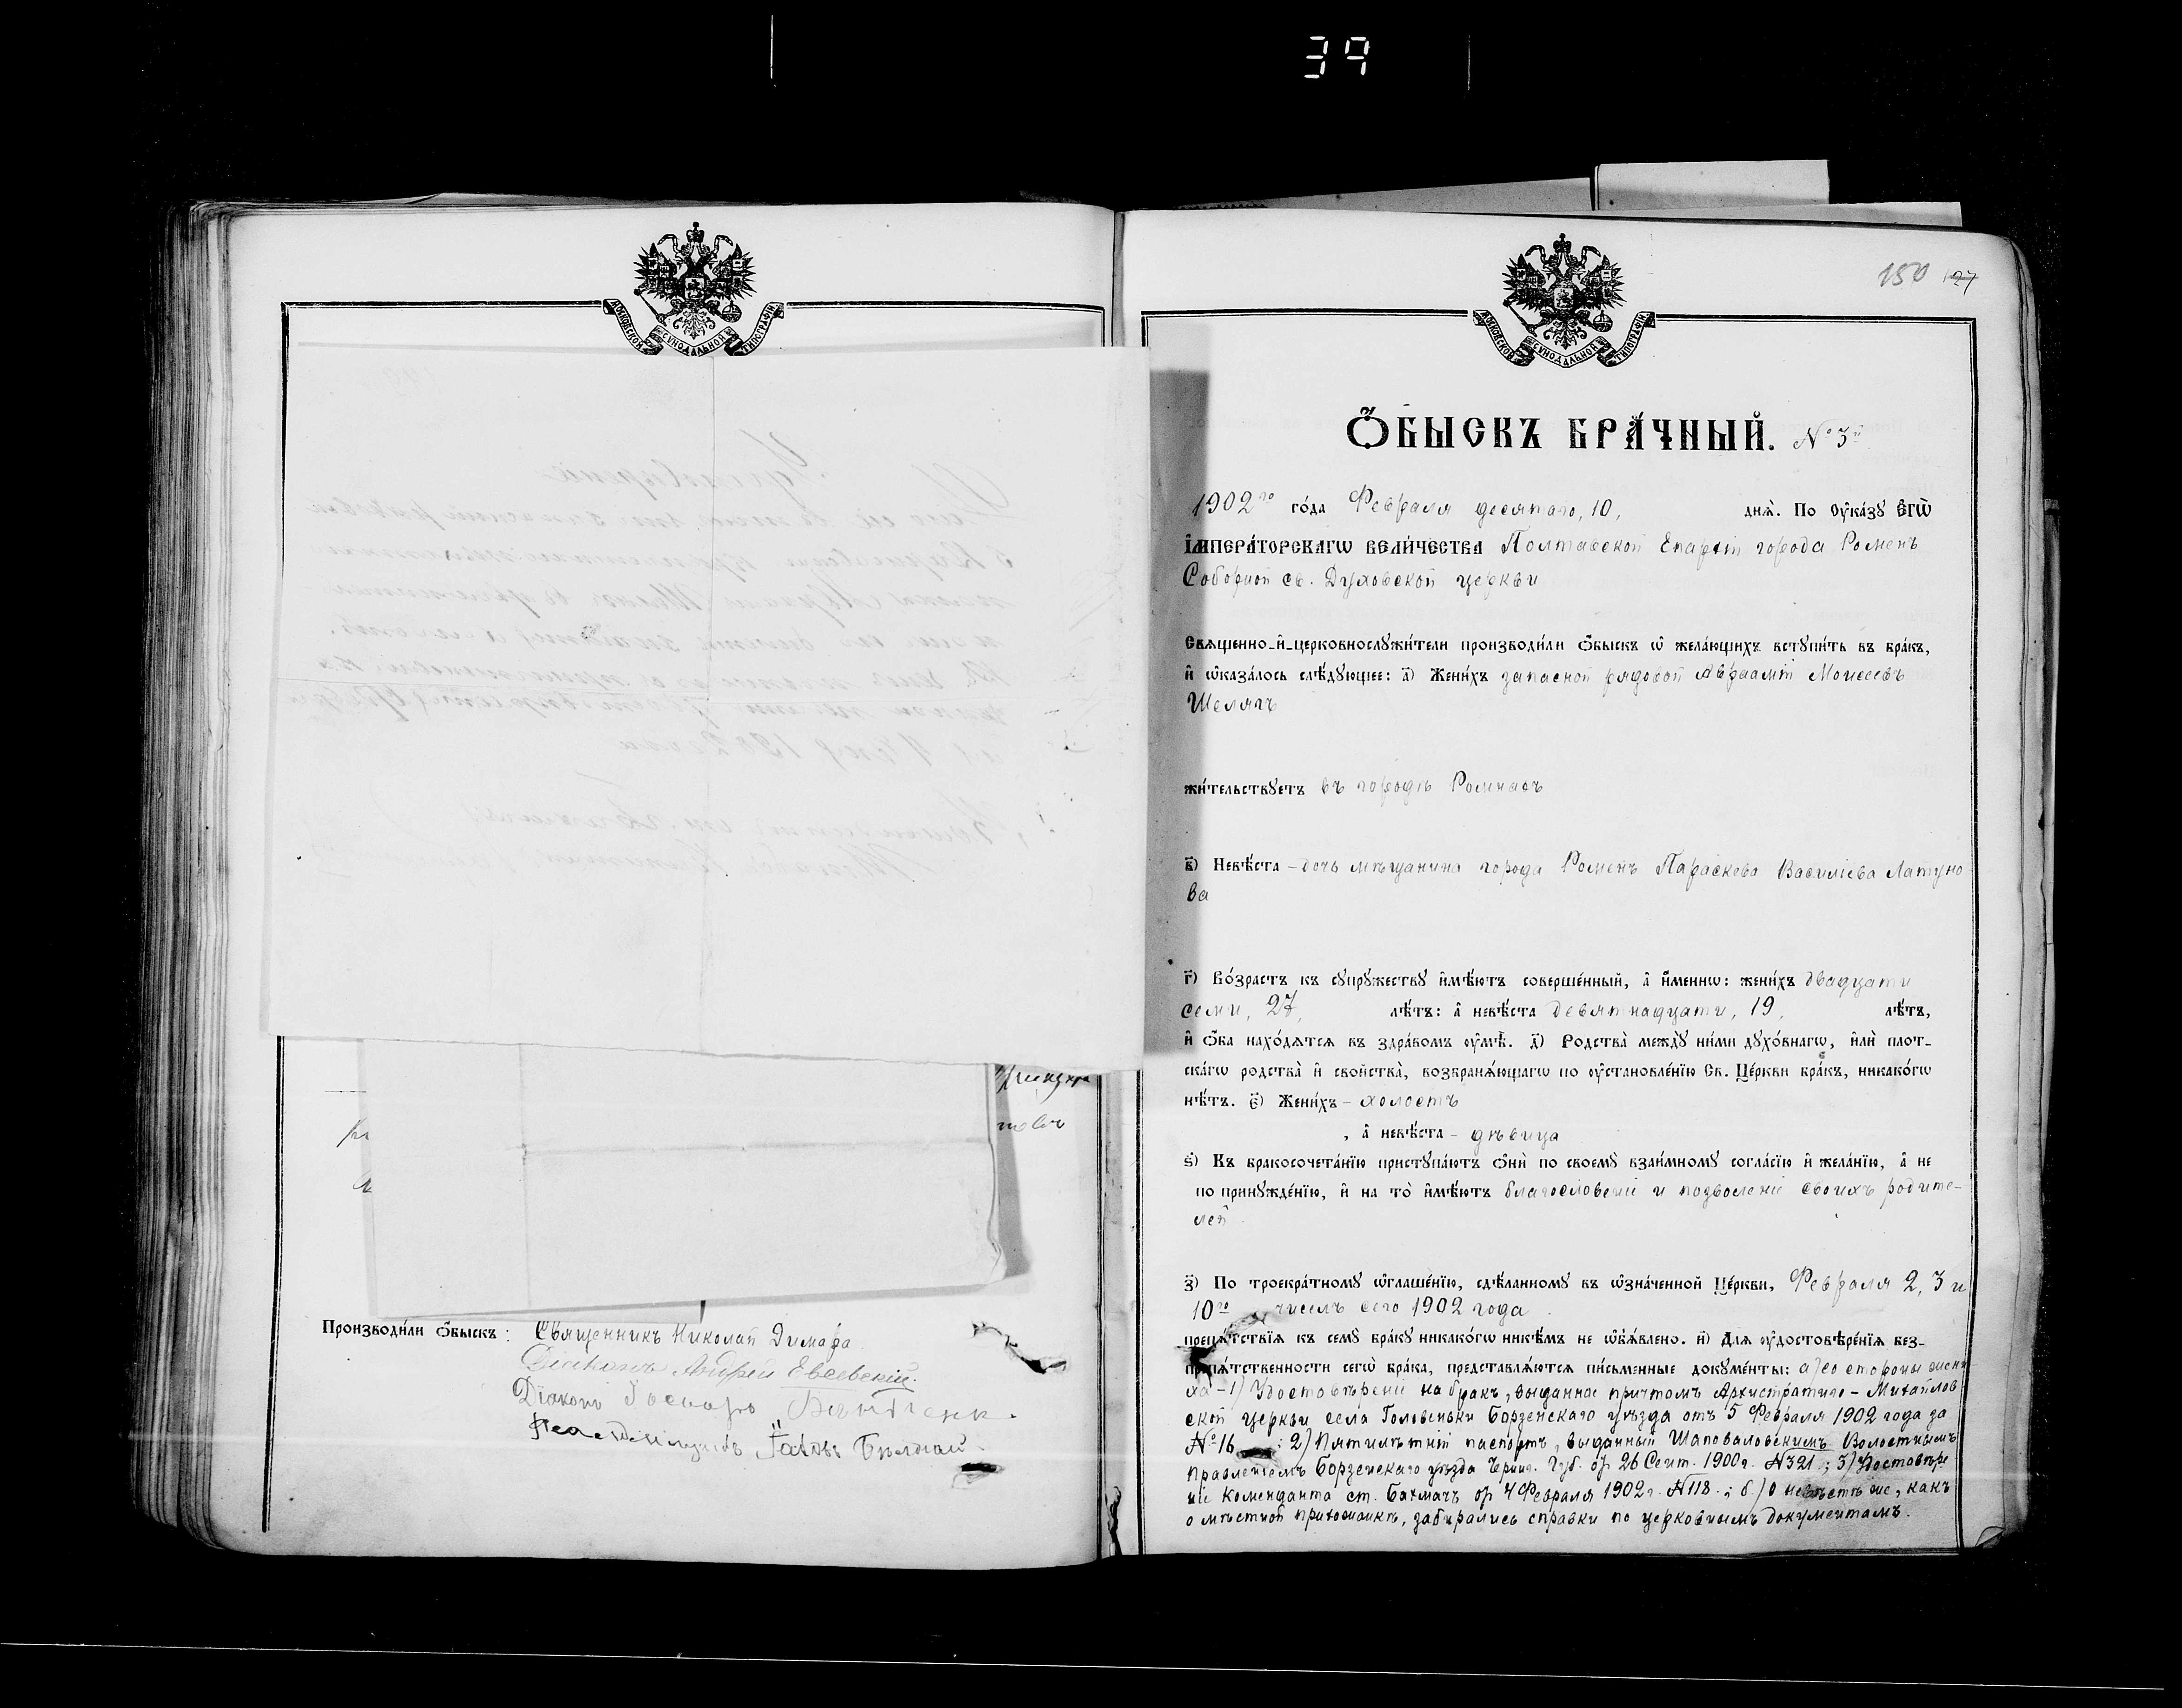 39
МОСКОВСКОЙ СѴНОДАЛЬНОЙ ТИПОГРАФІИ
Производи́ли ѻ҆́быскъ: Священникъ Николай Димара.
Діаконъ Андрей Евсевскій.
Діаконъ
Псаломщикъ
150 127
МОСКОВСКОЙ СѴНОДАЛЬНОЙ ТИПОГРАФІИ
Ѻ҆́БЫСКЪ БРА́ЧНЫЙ. № 3й
1902го го́да Февраля десятаго, 10, днѧ̀. По ᲂу҆ка́зꙋ Е҆гѡ̀
І҆мпера́торскагѡ вели́чества Полтавской Епархіи города Роменъ
Соборной св. Духовской церкви
Свѧщенно-и҆-церковнослꙋжи́тели производи́ли ѻ҆́быскъ ѡ҆ жела́ющихъ встꙋпи́ть въ бра́къ,
и҆ ѡ҆каза́лось слѣ́дꙋющее: а҃) Жени́хъ запасной рядовой Авраамій Моисеевъ
Шелягъ
жи́тельствꙋетъ въ городѣ Ромнахъ
в҃) Невѣ́ста – дочь мѣщанина города Роменъ Параскева Василіева Латуно
ва
г҃) Во́зрастъ къ сꙋпрꙋ́жествꙋ и҆мѣ́ютъ соверше́нный, а҆ и҆́меннѡ: жени́хъ двадцати
семи, 27, лѣ́тъ: а҆ невѣ́ста девятнадцати, 19, лѣ́тъ,
и҆ ѻ҆́ба нахо́дѧтсѧ въ здра́вомъ ᲂу҆мѣ̀. д҃) Родства̀ междꙋ̀ ни́ми дꙋхо́внагѡ, и҆лѝ плот-
ска́гѡ родства̀ и҆ свойства̀, возбранѧ́ющагѡ по ᲂу҆становле́нїю Св. Це́ркви бра́къ, никако́гѡ
нѣ́тъ. є҃) Жени́хъ – холостъ
, а҆ невѣ́ста – дѣвица
ѕ҃) Къ бракосочета́нїю пристꙋпа́ютъ ѻ҆нѝ по своемꙋ̀ взаи́мномꙋ согла́сїю и҆ жела́нїю, а҆ не
по принꙋжде́нїю, и҆ на то̀ и҆мѣ́ютъ благословеніи и позволеніи своихъ родите-
лей.
з҃) По троекра́тномꙋ ѡ҆глаше́нїю, сдѣ́ланномꙋ въ ѡ҆зна́ченной Це́ркви, Февраля 2, 3 и
10го числъ сего 1902 года
препѧ́тствїѧ къ семꙋ̀ бра́кꙋ никако́гѡ никѣ́мъ не ѡ҆б̾ѧ́влено. и҃) Длѧ ᲂу҆достовѣре́нїѧ без-
препѧ́тственности сегѡ̀ бра́ка, представлѧ́ютсѧ пи́сьменные докꙋме́нты: а) со стороны жени-
ха – 1) Удостовѣреніе на бракъ, выданное причтомъ Архистратиго-Михайлов-
ской церкви села Головеньки Борзенскаго уѣзда отъ 5 Февраля 1902 года за
№ 16; 2) Пятилѣтній паспортъ, выданный Шаповаловскимъ Волостнымъ
правленіемъ Борзенскаго уѣзда Черниг. Губ. от 26 Сент. 1900 г. № 321; 3) Удостовѣре-
ніе Коменданта ст. Бахмачъ от 4 Февраля 1902 г. № 118.; б) о невѣстѣ же, какъ
о мѣстной прихожанкѣ, забирались справки по церковнымъ документамъ.